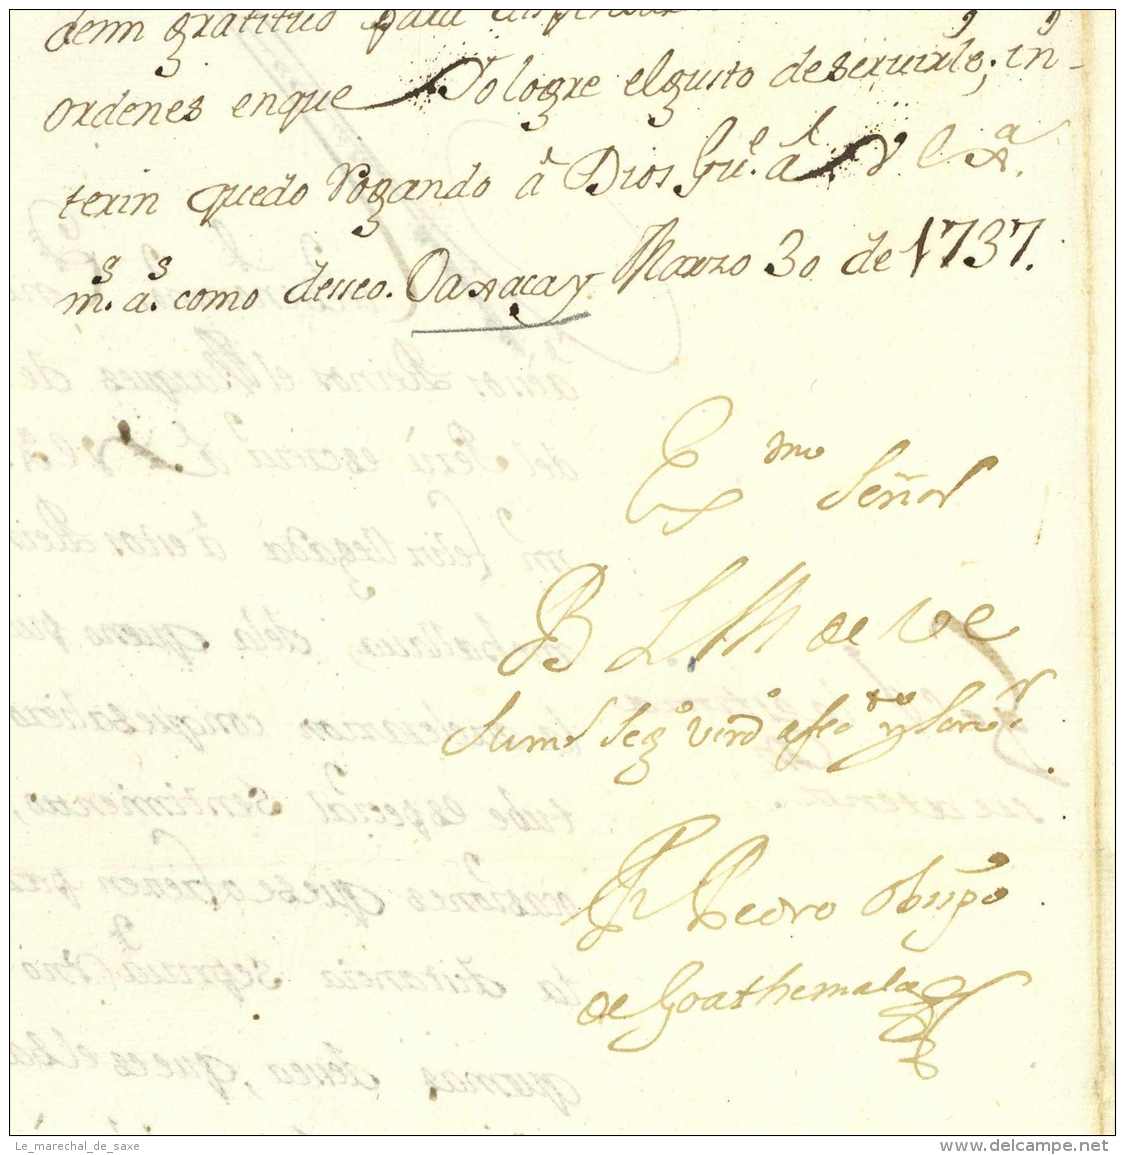 demi gratitud para dispensar
ordenes enque Yo logre elgusto deseruirle; in-
terin quedo Rogando â Dios Gu.e a l V Exa.
m.s a.s como desseo. Oaxaca y Marzo 30 de 1737.
Exmo Señor
B L M de VE
Su mr Segº verdº afecto y serv.r
Fr Pedro Obispo
de Goathemala
Le_marechal_de_saxe
www.delcampe.net